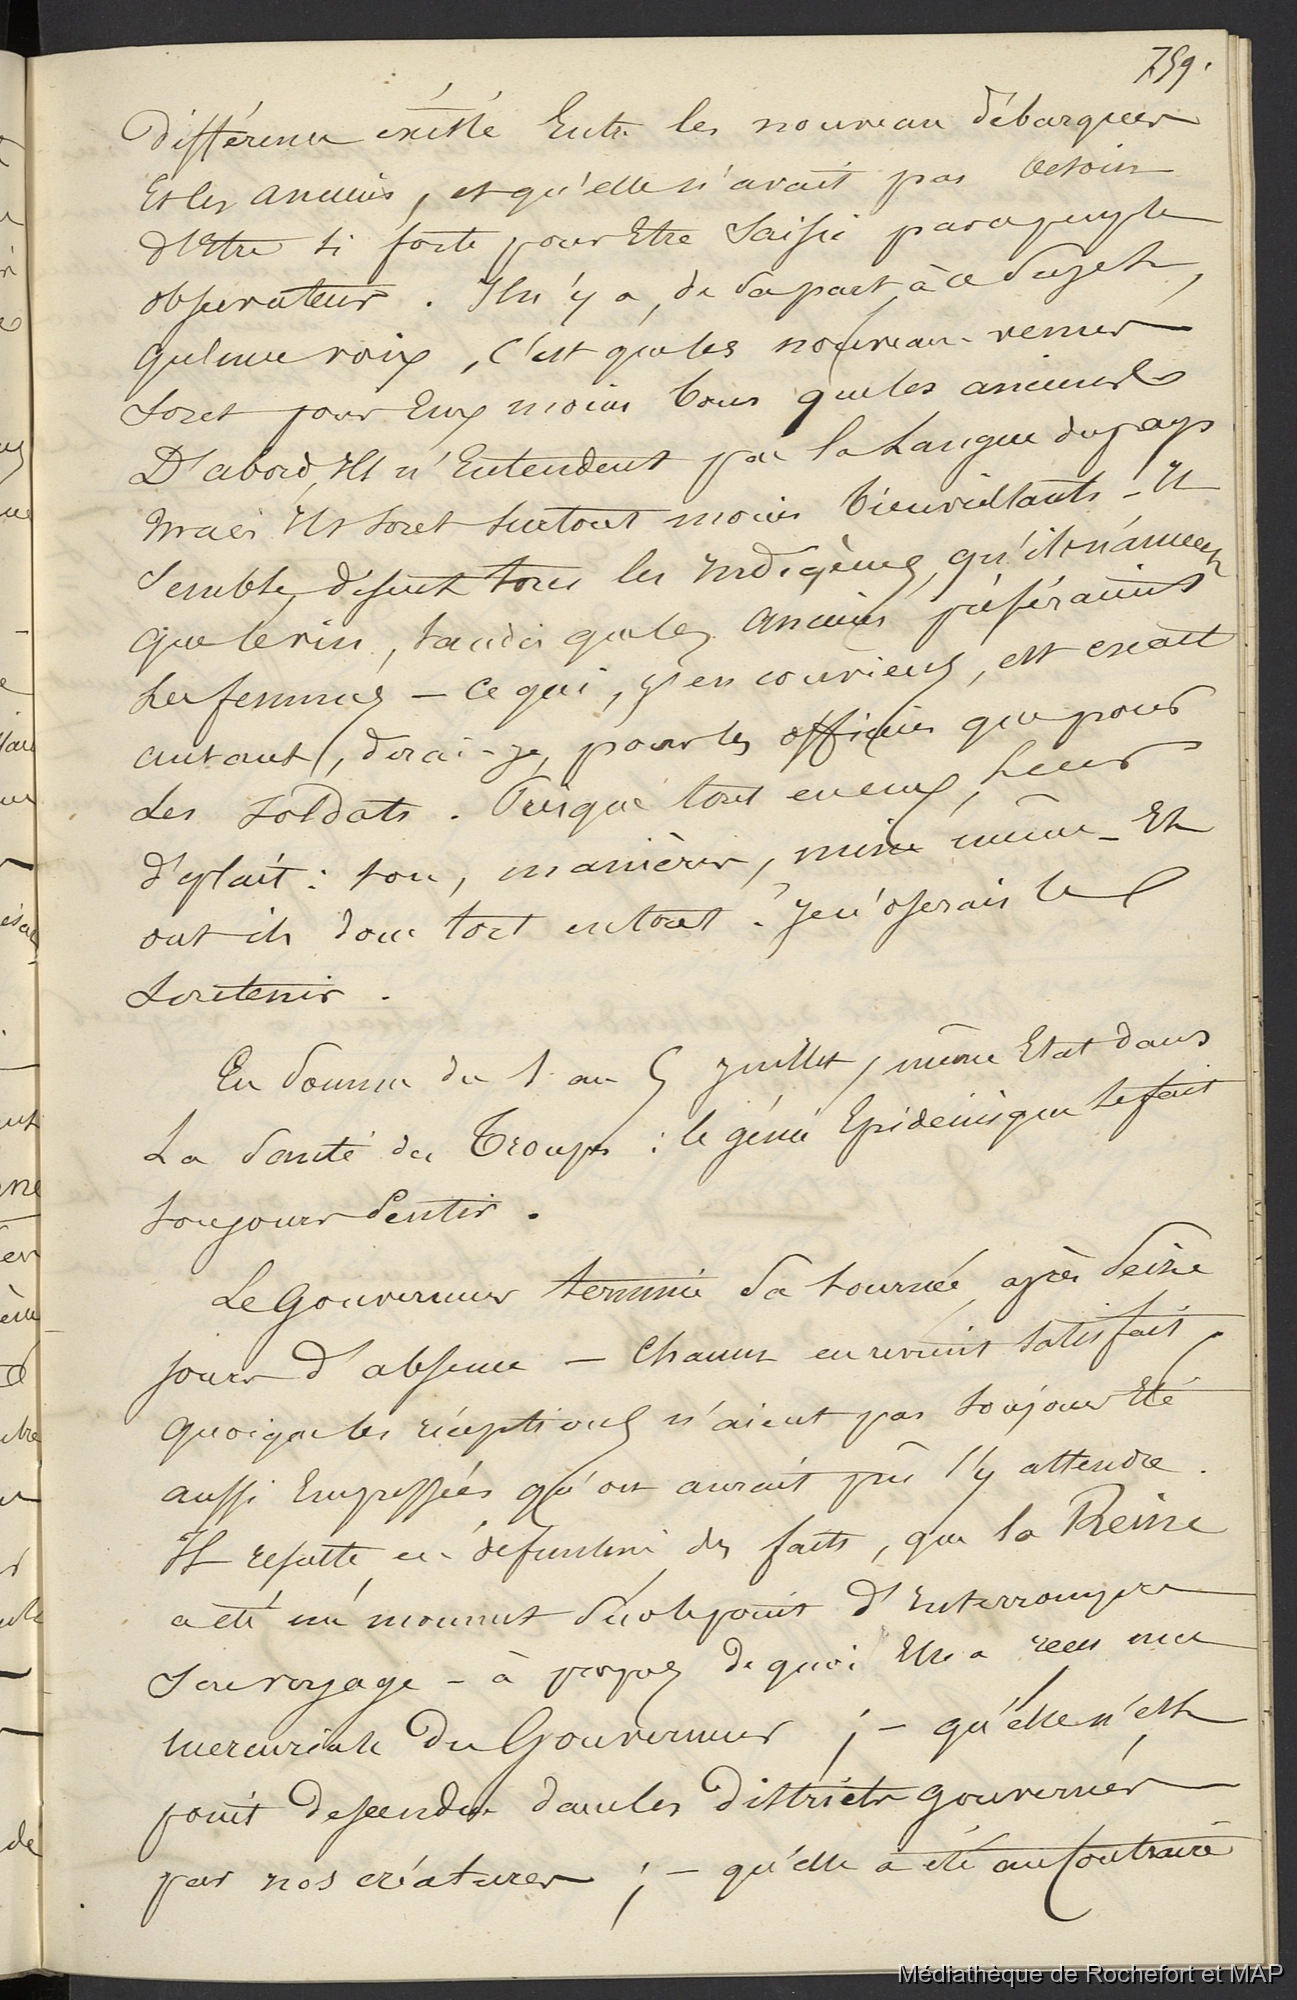 759.
différence existé Entre les nouveau débarqués
Et les anciens, et qu'elle n'avait pas besoin
d'Etre si forte pour Etre Saisie par ce peuple
observateur. Il n'y a, de sa part, à ce Sujet,
qu'une voix, C'est que les nouveau-venus
Sont pour Eux moins bons que les anciens
D'abord, Ils n'Entendent pas la Langue du pays
Mais Ils sont surtout moins bienveillants - Il
Semble, disent tous les Indigènes, qu'ils n'aiment
que le vin, tandis que les anciens préféraient
Les femmes - Ce qui, j'en conviens, est exact
autant, dirai-je, pour les officiers que pour
Les Soldats. Presque tout en eux, Leur
déplait : ton, manières, mine même - Et
ont ils donc tort en tout ? Je n'oserais le
Soutenir.
En Somme du 1 au 5 juillet, même Etat dans
La Santé des Troupes : le génie Epidémique Se fait
toujours Sentir.
Le Gouverneur termine Sa tournée après Seize
jours d'absence - Chacun en revient Satisfait,
quoique les réceptions n'aient pas toujours Eté
aussi Empressées qu'on aurait pû S'y attendre.
Il résulte, en définitive des faits, que la Reine
a été un moment Sur le point d'Interrompre
Son voyage - à propos de quoi Elle a reçu une
mercuriale Du Gouverneur ; - qu'elle n'est
point Descendue dans les Districts gouvernés
par nos créatures ; - qu'elle a été au Contraire
Médiathèque de Rochefort et MAP